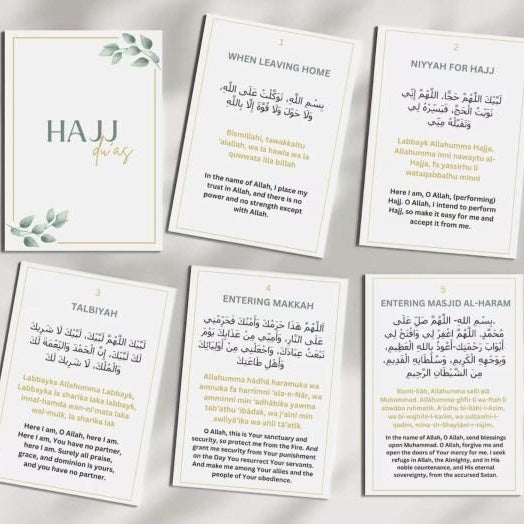 HAJJ
du'as
1
WHEN LEAVING HOME
بِسْمِ اللَّهِ، تَوَكَّلْتُ عَلَى اللَّهِ،
وَلَا حَوْلَ وَلَا قُوَّةَ إِلَّا بِاللَّهِ
Bismillahi, tawakkaltu
'alallah, wa la hawla wa la
quwwata illa billah
In the name of Allah, I place my
trust in Allah, and there is no
power and no strength except
with Allah.
2
NIYYAH FOR HAJJ
لَبَّيْكَ اللَّهُمَّ حَجًّا. اللَّهُمَّ إِنِّي
نَوَيْتُ الْحَجَّ، فَيَسِّرْهُ لِي
وَتَقَبَّلْهُ مِنِّي
Labbayk Allahumma Hajja.
Allahumma inni nawaytu al-
Hajja, fa yassirhu li
wataqabbalhu minni
Here I am, O Allah, (performing)
Hajj. O Allah, I intend to perform
Hajj, so make it easy for me and
accept it from me.
3
TALBIYAH
لَبَّيْكَ اللَّهُمَّ لَبَّيْكَ، لَبَّيْكَ لَا شَرِيكَ
لَكَ لَبَّيْكَ، إِنَّ الْحَمْدَ وَالنِّعْمَةَ لَكَ
وَالْمُلْكَ، لَا شَرِيكَ لَكَ
Labbayka Allahumma Labbayk,
Labbayka la sharika laka labbayk,
innal-hamda wan-ni'mata laka
wal-mulk, la sharika lak
Here I am, O Allah, here I am.
Here I am, You have no partner,
here I am. Surely all praise,
grace, and dominion is yours,
and you have no partner.
4
ENTERING MAKKAH
اَللَّهُمَّ هَذَا حَرَمُكَ وَأَمْنُكَ فَحَرِّمْنِي
عَلَى النَّارِ، وَأَمِنِّي مِنْ عَذَابِكَ يَوْمَ
تَبْعَثُ عِبَادَكَ، وَاجْعَلْنِي مِنْ أَوْلِيَائِكَ
وَأَهْلِ طَاعَتِكَ
Allahumma hādhā haramuka wa
amnuka fa harrimni 'ala-n-Nār, wa
amminni min 'adhābika yawma
tab'athu 'ibādak, wa j'alni min
awliyā'ika wa ahli tā'atik.
O Allah, this is Your sanctuary and
security, so protect me from the Fire. And
grant me security from Your punishment
on the Day You resurrect Your servants.
And make me among Your allies and the
people of Your obedience.
5
ENTERING MASJID AL-HARAM
بِسْمِ اللهِ- اللَّهُمَّ صَلِّ عَلَى
مُحَمَّدٍ. اللَّهُمَّ اغْفِرْ لِي وَافْتَحْ لِي
أَبْوَابَ رَحْمَتِكَ-أَعُوذُ بِاللهِ الْعَظِيمِ،
وَبِوَجْهِهِ الْكَرِيمِ، وَسُلْطَانِهِ الْقَدِيمِ،
مِنَ الشَّيْطَانِ الرَّجِيمِ
In the name of Allah, O Allah, send blessings
upon Muhammad. O Allah, forgive me and
open the doors of Your mercy for me. I seek
refuge in Allah, the Almighty, and in His
noble countenance, and His eternal
sovereignty, from the accursed Satan.